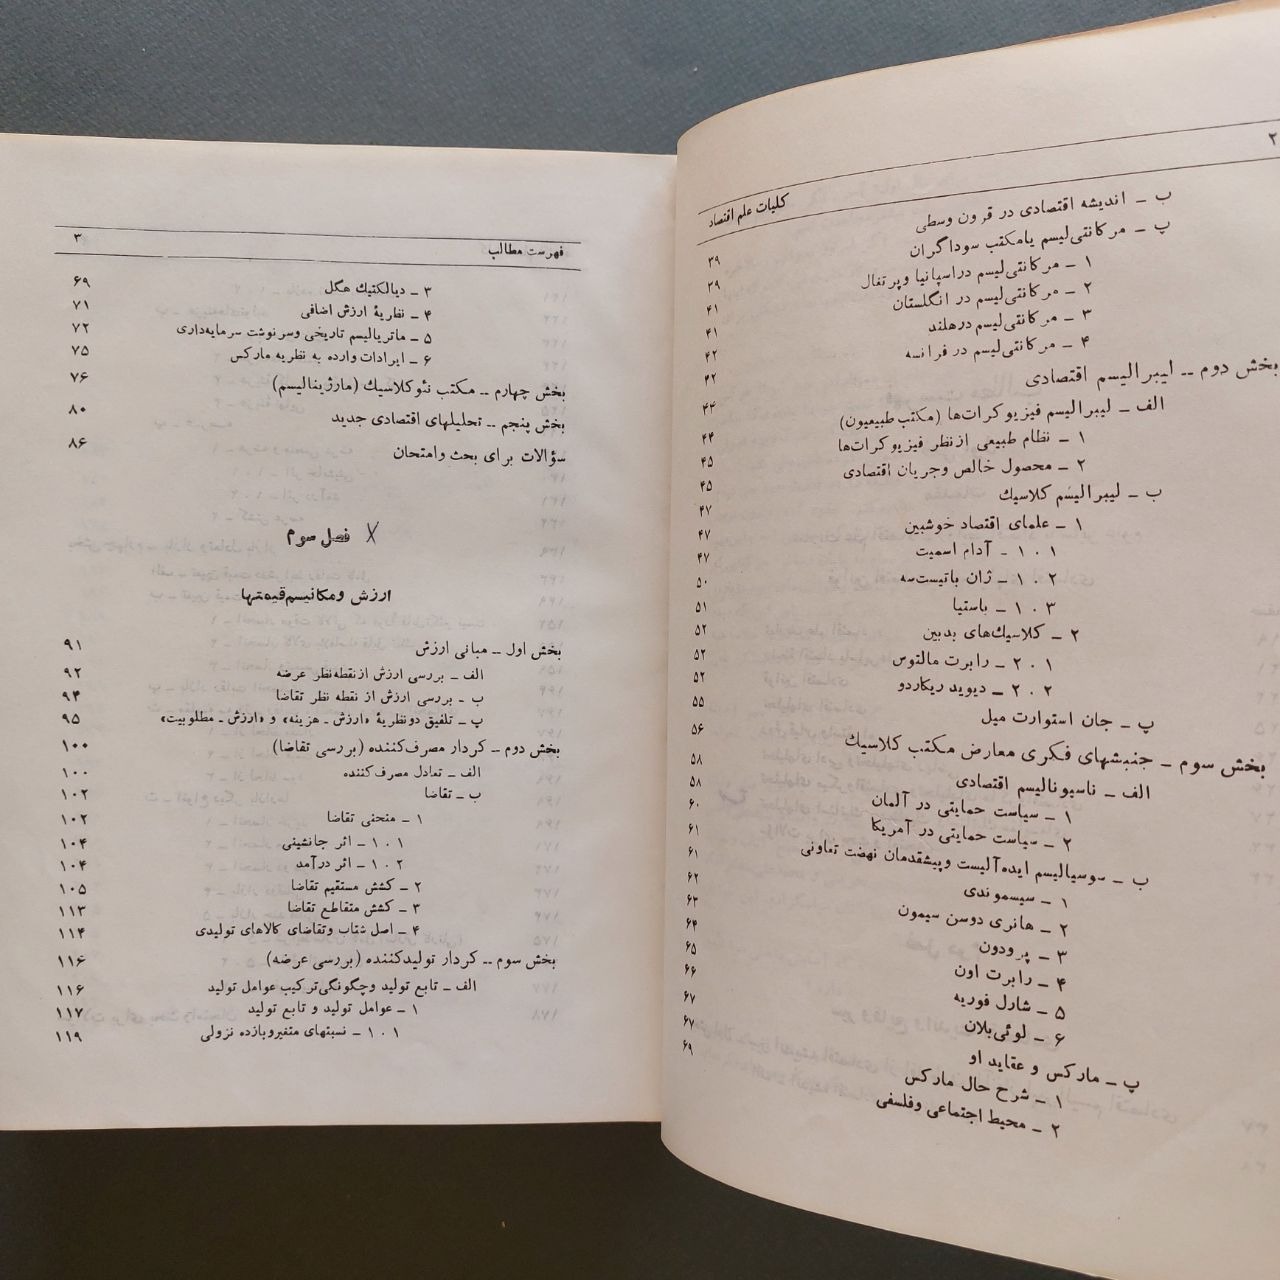 ۲
کلیات علم اقتصاد
ب ـ اندیشه اقتصادی در قرون وسطی ۳۹
پ ـ مرکانتی‌لیسم یامکتب سوداگران ۳۹
۱ ـ مرکانتی‌لیسم دراسپانیا وپرتغال ۴۱
۲ ـ مرکانتی‌لیسم در انگلستان ۴۱
۳ ـ مرکانتی‌لیسم درهلند ۴۲
۴ ـ مرکانتی‌لیسم در فرانسه ۴۲
بخش دوم ــ لیبرالیسم اقتصادی ۴۳
الف ـ لیبرالیسم فیزیوکرات‌ها (مکتب طبیعیون) ۴۴
۱ ـ نظام طبیعی ازنظر فیزیوکرات‌ها ۴۵
۲ ـ محصول خالص وجریان اقتصادی ۴۵
ب ـ لیبرالیسم کلاسیك ۴۷
۱ ـ علمای اقتصاد خوشبین ۴۷
۱۰۱ ـ آدام اسمیت ۴۷
۱۰۲ ـ ژان باتیست‌سه ۵۰
۱۰۳ ـ باستیا ۵۱
۲ ـ کلاسیك‌های بدبین ۵۲
۲۰۱ ـ رابرت مالتوس ۵۲
۲۰۲ ـ دیوید ریکاردو ۵۲
پ ـ جان استوارت میل ۵۵
بخش سوم ـ جنبشهای فکری معارض مکتب کلاسیك ۵۶
الف ـ ناسیونالیسم اقتصادی ۵۸
۱ ـ سیاست حمایتی در آلمان ۵۸
۲ ـ سیاست حمایتی در آمریکا ۶۰
ب ـ سوسیالیسم ایده‌آلیست وپیشقدمان نهضت تعاونی ۶۱
۱ ـ سیسموندی ۶۱
۲ ـ هانری دوسن سیمون ۶۲
۳ ـ پرودون ۶۳
۴ ـ رابرت اون ۶۴
۵ ـ شارل فوریه ۶۵
۶ ـ لوئی‌بلان ۶۶
پ ـ مارکس و عقاید او ۶۷
۱ ـ شرح حال مارکس ۶۷
۲ ـ محیط اجتماعی وفلسفی ۶۹
فهرست مطالب ۳
۳ ـ دیالکتیك هگل ۶۹
۴ ـ نظریهٔ ارزش اضافی ۷۱
۵ ـ ماتریالیسم تاریخی وسرنوشت سرمایه‌داری ۷۲
۶ ـ ایرادات وارده به نظریه مارکس ۷۵
بخش چهارم ــ مکتب نئوکلاسیك (مارژینالیسم) ۷۶
بخش پنجم ــ تحلیلهای اقتصادی جدید ۸۰
سؤالات برای بحث وامتحان ۸۶
فصل سوم
ارزش ومکانیسم‌قیمتها
بخش اول ــ مبانی ارزش ۹۱
الف ـ بررسی ارزش ازنقطه‌نظر عرضه ۹۲
ب ـ بررسی ارزش از نقطه نظر تقاضا ۹۴
پ ـ تلفیق دونظریهٔ «ارزش ـ هزینه» و «ارزش ـ مطلوبیت» ۹۵
بخش دوم ــ کردار مصرف‌کننده (بررسی تقاضا) ۱۰۰
الف ـ تعادل مصرف‌کننده ۱۰۰
ب ـ تقاضا ۱۰۲
۱ ـ منحنی تقاضا ۱۰۲
۱۰۱ ـ اثر جانشینی ۱۰۴
۱۰۲ ـ اثر درآمد ۱۰۴
۲ ـ کشش مستقیم تقاضا ۱۰۵
۳ ـ کشش متقاطع تقاضا ۱۱۳
۴ ـ اصل شتاب وتقاضای کالاهای تولیدی ۱۱۴
بخش سوم ــ کردار تولیدکننده (بررسی عرضه) ۱۱۶
الف ـ تابع تولید وچگونگی‌ترکیب عوامل تولید ۱۱۶
۱ ـ عوامل تولید و تابع تولید ۱۱۷
۱۰۱ ـ نسبتهای متغیروبازده نزولی ۱۱۹